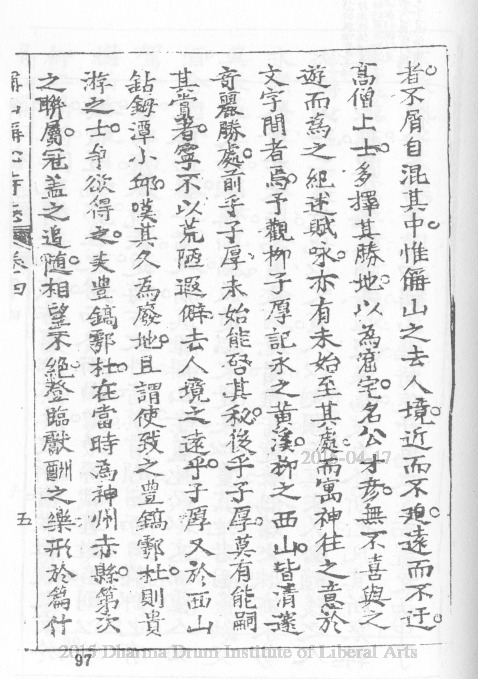 者不屑自混其中惟偏山之去人境近而不迫遠而不迂
高僧上士多擇其勝地以為窟宅名公才彥無不喜與之
遊而為之紀述賦咏亦有未始至其處而寓神往之意於
文字間者焉予觀柳子厚記永之黃溪柳之西山皆清邃
奇麗勝處前乎子厚未始能啓其秘後乎子厚莫有能嗣
其賞者寧不以荒陋遐僻去人境之遠乎子厚又於西山
鈷鉧潭小邱嘆其久為廢地且謂使致之豐鎬鄠杜則貴
游之士爭欲得之夫豐鎬鄠杜在當時為神州赤縣第次
之聯屬冠蓋之追隨相望不絕登臨獻酬之樂形於篇什
卷四
五
2015-04-17
97
2015 Dharma Drum Institute of Liberal Arts